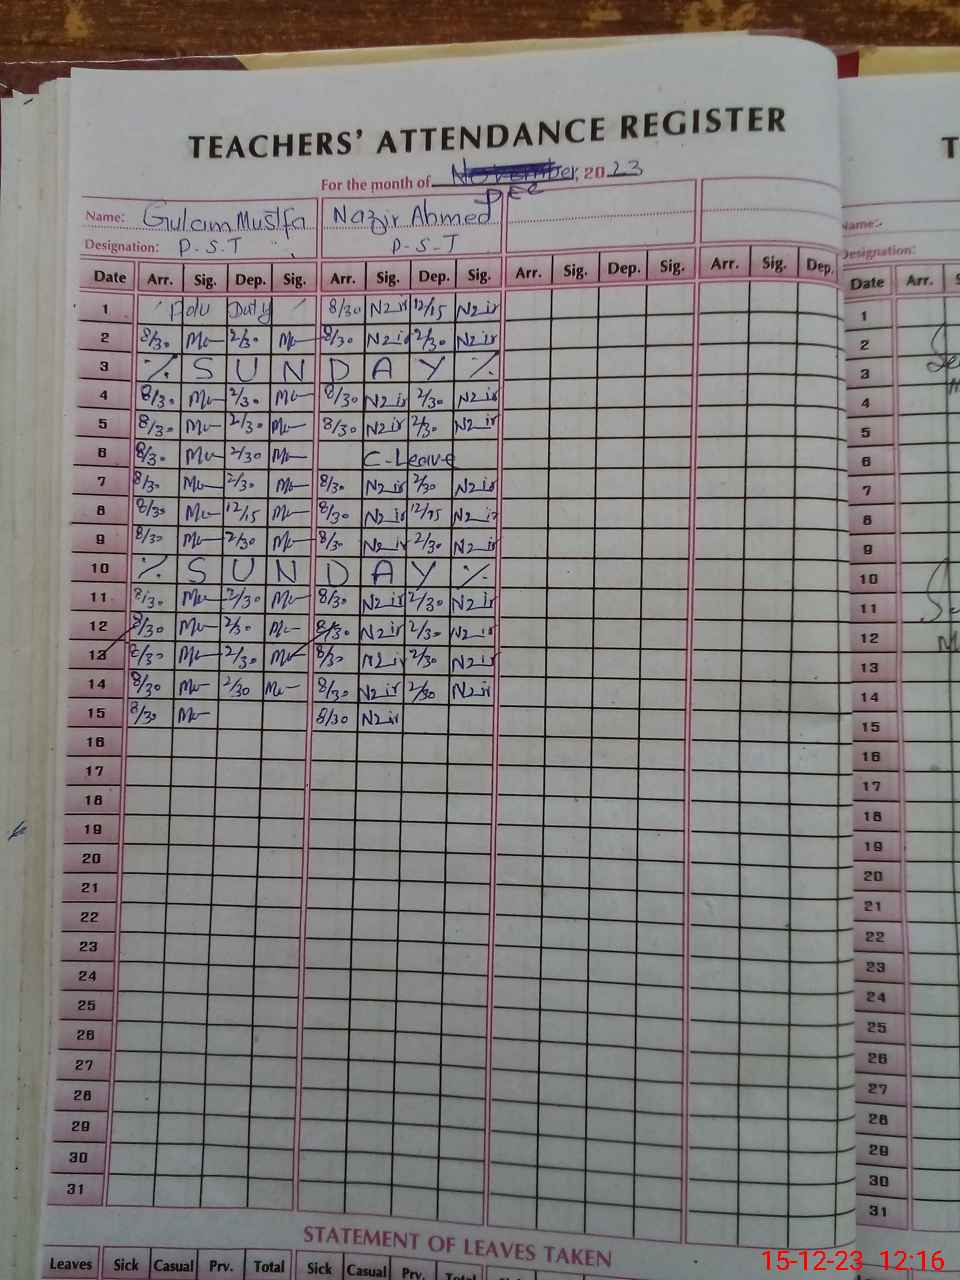 TEACHERS' ATTENDANCE REGISTER
For the month of November, 2023
Dec
Name: Gulam Mustfa Nazir Ahmed
Designation: P.S.T P.S.T
Date Arr. Sig. Dep. Sig. Arr. Sig. Dep. Sig. Arr. Sig. Dep. Sig. Arr. Sig. Dep.
1 Duty 8/30 Nzir 12/15 Nzir
2 8/30 Mu 2/30 Mu 8/30 Nzir 2/30 Nzir
3 % S U N D A Y %
4 8/30 Mu 2/30 Mu 8/30 Nzir 2/30 Nzir
5 8/30 Mu 2/30 Mu 8/30 Nzir 2/30 Nzir
6 8/30 Mu 2/30 Mu C-Leave
7 8/30 Mu 2/30 Mu 8/30 Nzir 2/30 Nzir
8 8/30 Mu 12/15 Mu 8/30 Nzir 12/15 Nzir
9 8/30 Mu 2/30 Mu 8/30 Nzir 2/30 Nzir
10 % S U N D A Y %
11 8/30 Mu 2/30 Mu 8/30 Nzir 2/30 Nzir
12 8/30 Mu 2/30 Mu 8/30 Nzir 2/30 Nzir
13 8/30 Mu 2/30 Mu 8/30 Nzir 2/30 Nzir
14 8/30 Mu 2/30 Mu 8/30 Nzir 2/30 Nzir
15 8/30 Mu 8/30 Nzir
16
17
18
19
20
21
22
23
24
25
26
27
28
29
30
31
STATEMENT OF LEAVES TAKEN
Leaves Sick Casual Prv. Total Sick Casual Prv. Total
T
Name:
Designation:
Date Arr.
1
2
3
4
5
6
7
8
9
10
11
12
13
14
15
16
17
18
19
20
21
22
23
24
25
26
27
28
29
30
31
15-12-23 12:16